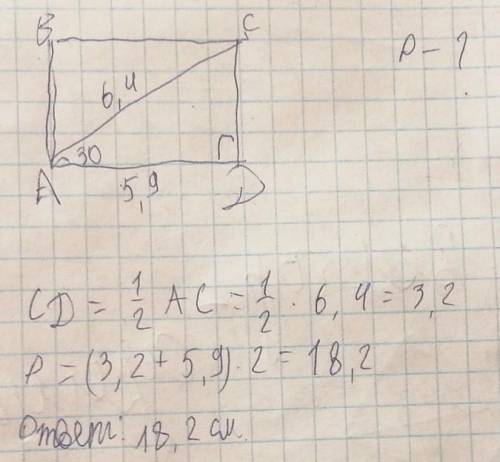 B C
P - ?
6,4
30
A 5,9 D
CD = 1/2 AC = 1/2 · 6,4 = 3,2
P = (3,2 + 5,9) · 2 = 18,2
Ответ: 18,2 см.